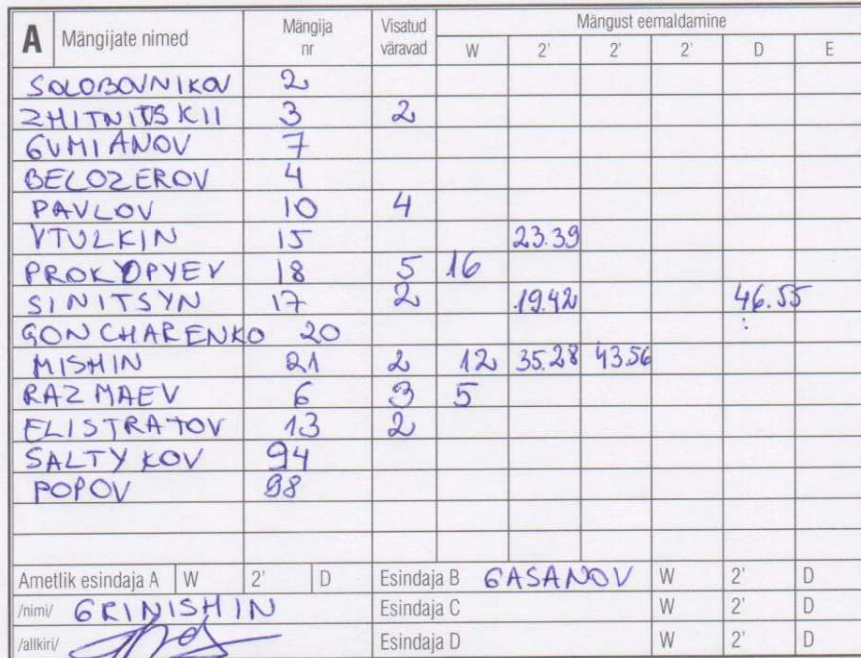 A Mängijate nimed Mängija nr Visatud väravad Mängust eemaldamine
W 2' 2' 2' D E
SOLOBOVNIKOV 2
ZHITNITSKII 3 2
GUMIANOV 7
BELOZEROV 4
PAVLOV 10 4
VTULKIN 15 23.39
PROKOPYEV 18 5 16
SINITSYN 17 2 19.42 46.55
GONCHARENKO 20
MISHIN 21 2 12 35.28 43.56
RAZMAEV 6 3 5
ELISTRATOV 13 2
SALTYKOV 94
POPOV 98
Ametlik esindaja A W 2' D Esindaja B GASANOV W 2' D
/nimi/ GRINISHIN Esindaja C W 2' D
/allkiri/ Esindaja D W 2' D